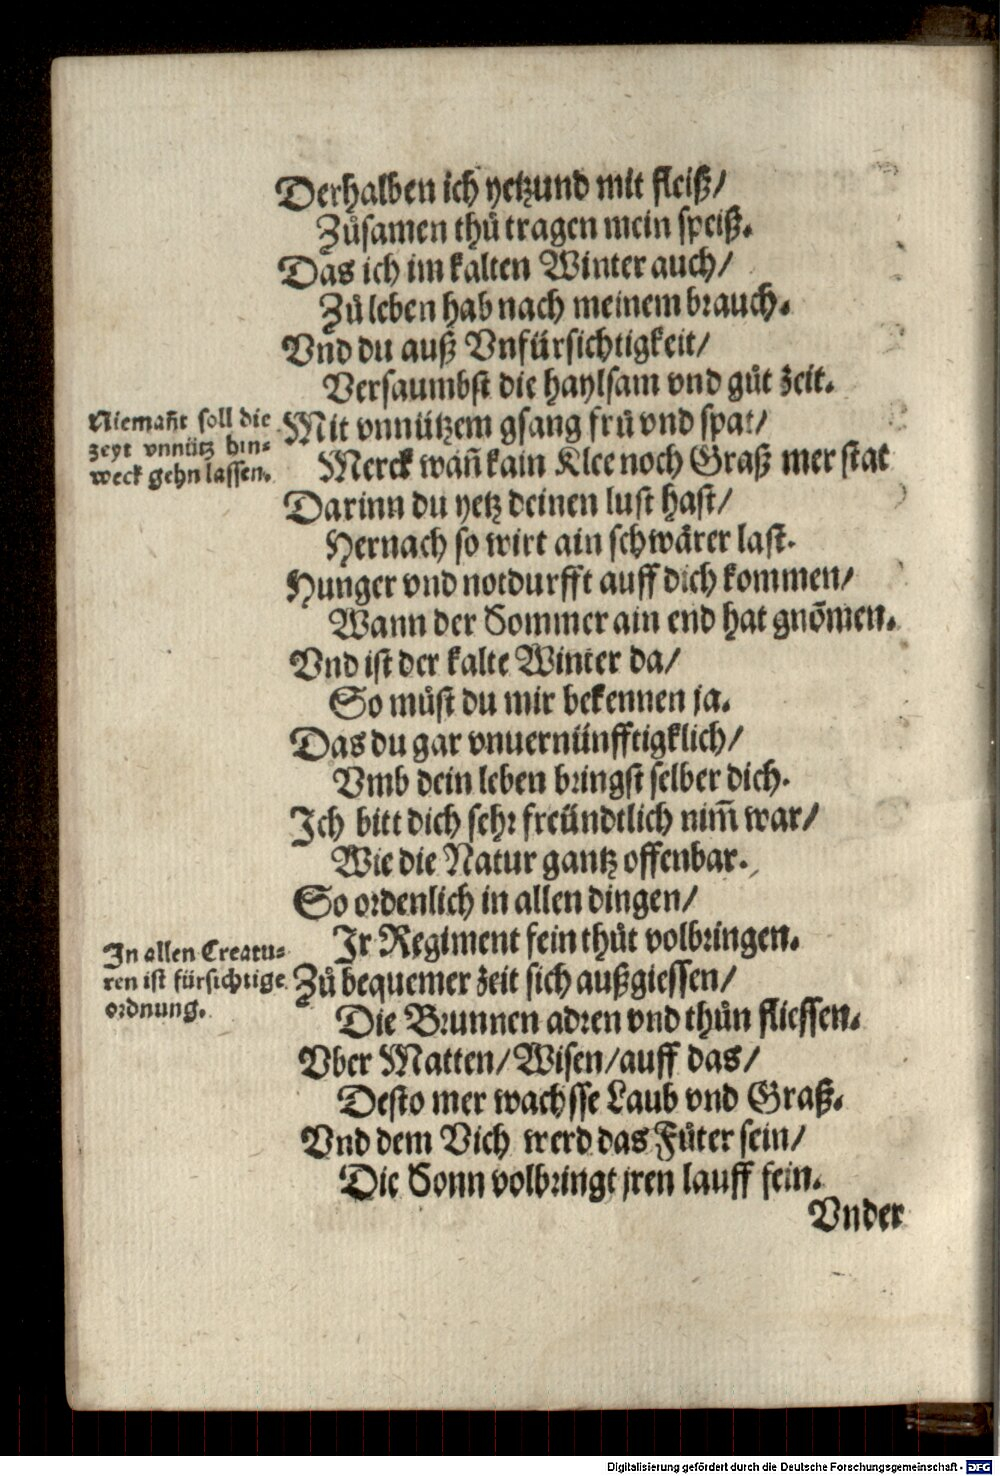 Derhalben ich yetzund mit fleiß/
Zuͦsamen thuͦ tragen mein speiß.
Das ich im kalten Winter auch/
Zuͦ leben hab nach meinem brauch.
Vnd du auß Vnfürsichtigkeit/
Versaumbst die haylsam vnd guͦt zeit.
Niemañt soll die
zeyt vnnütz hin-
weck gehn lassen.
Mit vnnützem gsang fruͤ vnd spat/
Merck wañ kain Klee noch Graß mer stat
Darinn du yetz deinen lust hast/
Hernach so wirt ain schwaͤrer last.
Hunger vnd notdurfft auff dich kommen/
Wann der Sommer ain end hat gnōmen.
Vnd ist der kalte Winter da/
So muͦst du mir bekennen ja.
Das du gar vnuernünfftigklich/
Vmb dein leben bringst selber dich.
Ich bitt dich sehr freündtlich nim̃ war/
Wie die Natur gantz offenbar.
So ordenlich in allen dingen/
Ir Regiment fein thuͦt volbringen.
In allen Creatu-
ren ist fürsichtige
ordnung.
Zuͦ bequemer zeit sich außgiessen/
Die Brunnen adren vnd thuͦn fliessen.
Vber Matten/Wisen/auff das/
Desto mer wachsse Laub vnd Graß.
Vnd dem Vich werd das Fuͦter sein/
Die Sonn volbringt jren lauff fein.
Vnder
Digitalisierung gefördert durch die Deutsche Forschungsgemeinschaft - DFG